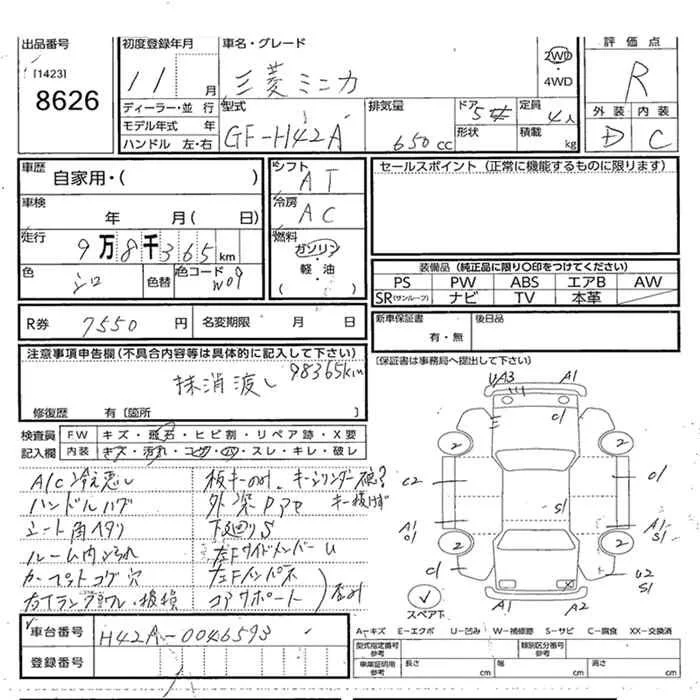 出品番号
[1423]
8626
初度登録年月
11 月
ディーラー・並 行
モデル年式 年
ハンドル 左・右
車名・グレード
三菱ミニカ
2WD
・
4WD
型式
GF-H42A
排気量
650cc
ドア
5
形状
定員
4人
積載
kg
評価点
R
外装 内装
D C
車歴
自家用・( )
車検
年 月( 日)
走行
9万8千365km
色
シロ
色替
色コード
W09
シフト
AT
冷房
AC
燃料
ガソリン
・
軽・油
( )
セールスポイント (正常に機能するものに限ります)
装備品 (純正品に限り〇印をつけてください)
PS PW ABS エアB AW
SR(サンルーフ) ナビ TV 本革
R券 7550 円 名変期限 月 日
新車保証書
有・無
後日品
(保証書は事務局へ提出して下さい)
注意事項申告欄(不具合内容等は具体的に記入して下さい)
98365km
抹消渡し
修復歴 有〔箇所 〕
検査員 FW キズ・飛石・ヒビ割・リペア跡・X要
記入欄 内装 キズ・汚れ・コゲ・穴・スレ・キレ・破レ
A/C冷え悪し
ハンドルハゲ
シート角ヘタリ
ルーム内汚れ
カーペットコゲ穴
板キーのみ、キーシリンダー破?
キー抜けず
外装Pアセ
下廻りS
左FサイドメンバーU
左Fインパネ
コアサポート
UA3
A1
C1
2
2
C2
C1
S1
A1
O1
A1
S1
2
2
C1
U2
S1
A1
A2
スペア下
A-キズ E-エクボ U-凹み W-補修跡 S-サビ C-腐食 XX-交換済
車台番号
H42A-0046593
登録番号
型式指定番号
参考
類別区分番号
参考
車庫証明用
参考
長さ cm
幅 cm
高さ cm